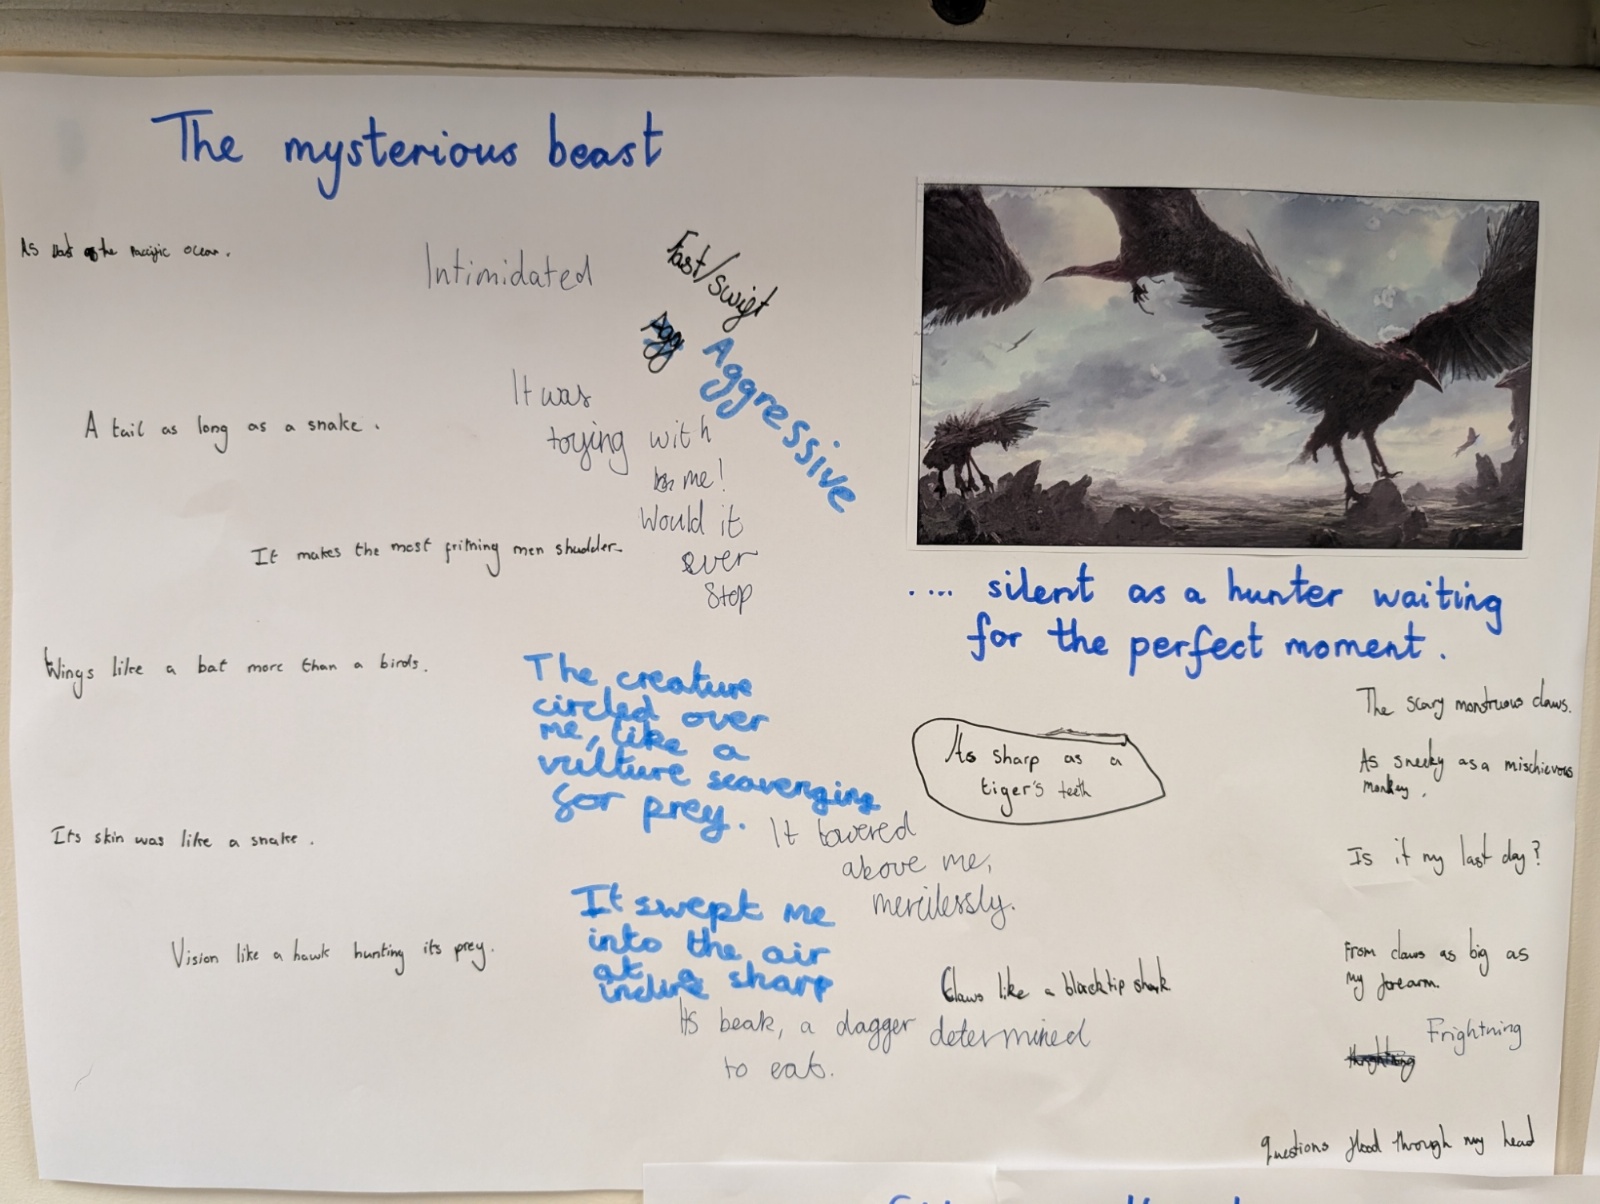 The mysterious beast
As vast as the Paccific ocean.
Intimidated
Fast/swift
Agg
Aggressive
It was
toying with
me!
Would it
ever
stop
A tail as long as a snake.
It makes the most fritning men shudder.
.... silent as a hunter waiting
for the perfect moment.
Wings like a bat more than a birds.
The creature
circled over
me, like a
vulture scavenging
for prey.
The scary monstruous claws.
As sharp as a
tiger's teeth
As sneeky as a mischievous
monkey.
It towered
above me,
mercilessly.
Its skin was like a snake.
Is it my last day?
It swept me
into the air
at a sharp
incline
Vision like a hawk hunting its prey.
From claws as big as
my forearm.
Claws like a blacktip shark
Its beak, a dagger determined
to eat.
Frightning
Questions flood through my head